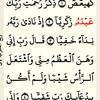 كٓهيعٓصٓ ۝ ذِكْرُ رَحْمَتِ رَبِّكَ
عَبْدَهُۥ زَكَرِيَّآ ۝ إِذْ نَادَىٰ رَبَّهُۥ
نِدَآءً خَفِيًّا ۝ قَالَ رَبِّ إِنِّى
وَهَنَ ٱلْعَظْمُ مِنِّى وَٱشْتَعَلَ
ٱلرَّأْسُ شَيْبًا وَلَمْ أَكُنۢ
بِدُعَآئِكَ رَبِّ شَقِيًّا ۝